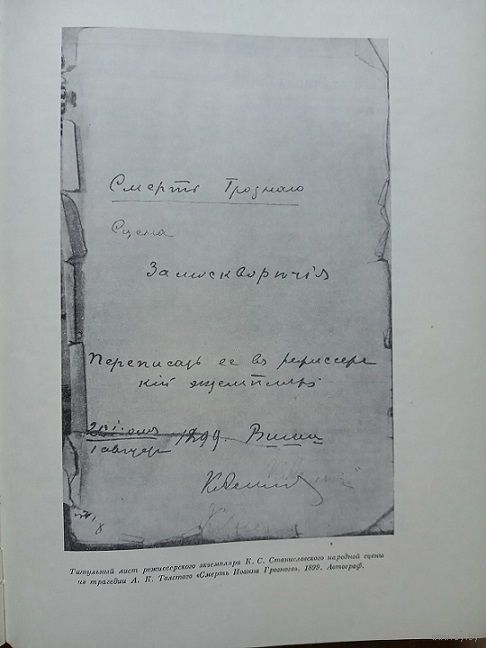 Смерть Грознаго
Сцена
Замоскворѣчія
Переписать ее въ режиссерс
кій экземпляръ
1899. Виши
1 август
Титульный лист режиссерского экземпляра К. С. Станиславского народной сцены
из трагедии А. К. Толстого «Смерть Иоанна Грозного». 1899. Автограф.